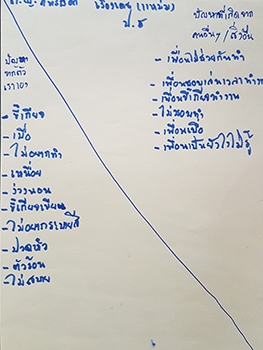 เรืองเดช (แหม่ม)
ป.5
ปัญหาที่เกิดจาก
คนอื่นๆ / สิ่งอื่น
ปัญหา
จากตัว
เราเอง
- เพื่อนไม่ช่วยกันทำ
- เพื่อนชอบเล่นเวลาทำงาน
- เพื่อนขี้เกียจทำงาน
- ไม่ชอบทำ
- เพื่อนเบื่อ
- เพื่อนเป็นอะไรไม่รู้
- ขี้เกียจ
- เบื่อ
- ไม่อยากทำ
- เหนื่อย
- ง่วงนอน
- ขี้เกียจเขียน
- ไม่อยากระบายสี
- ปวดหัว
- ตัวร้อน
- ไม่สบาย